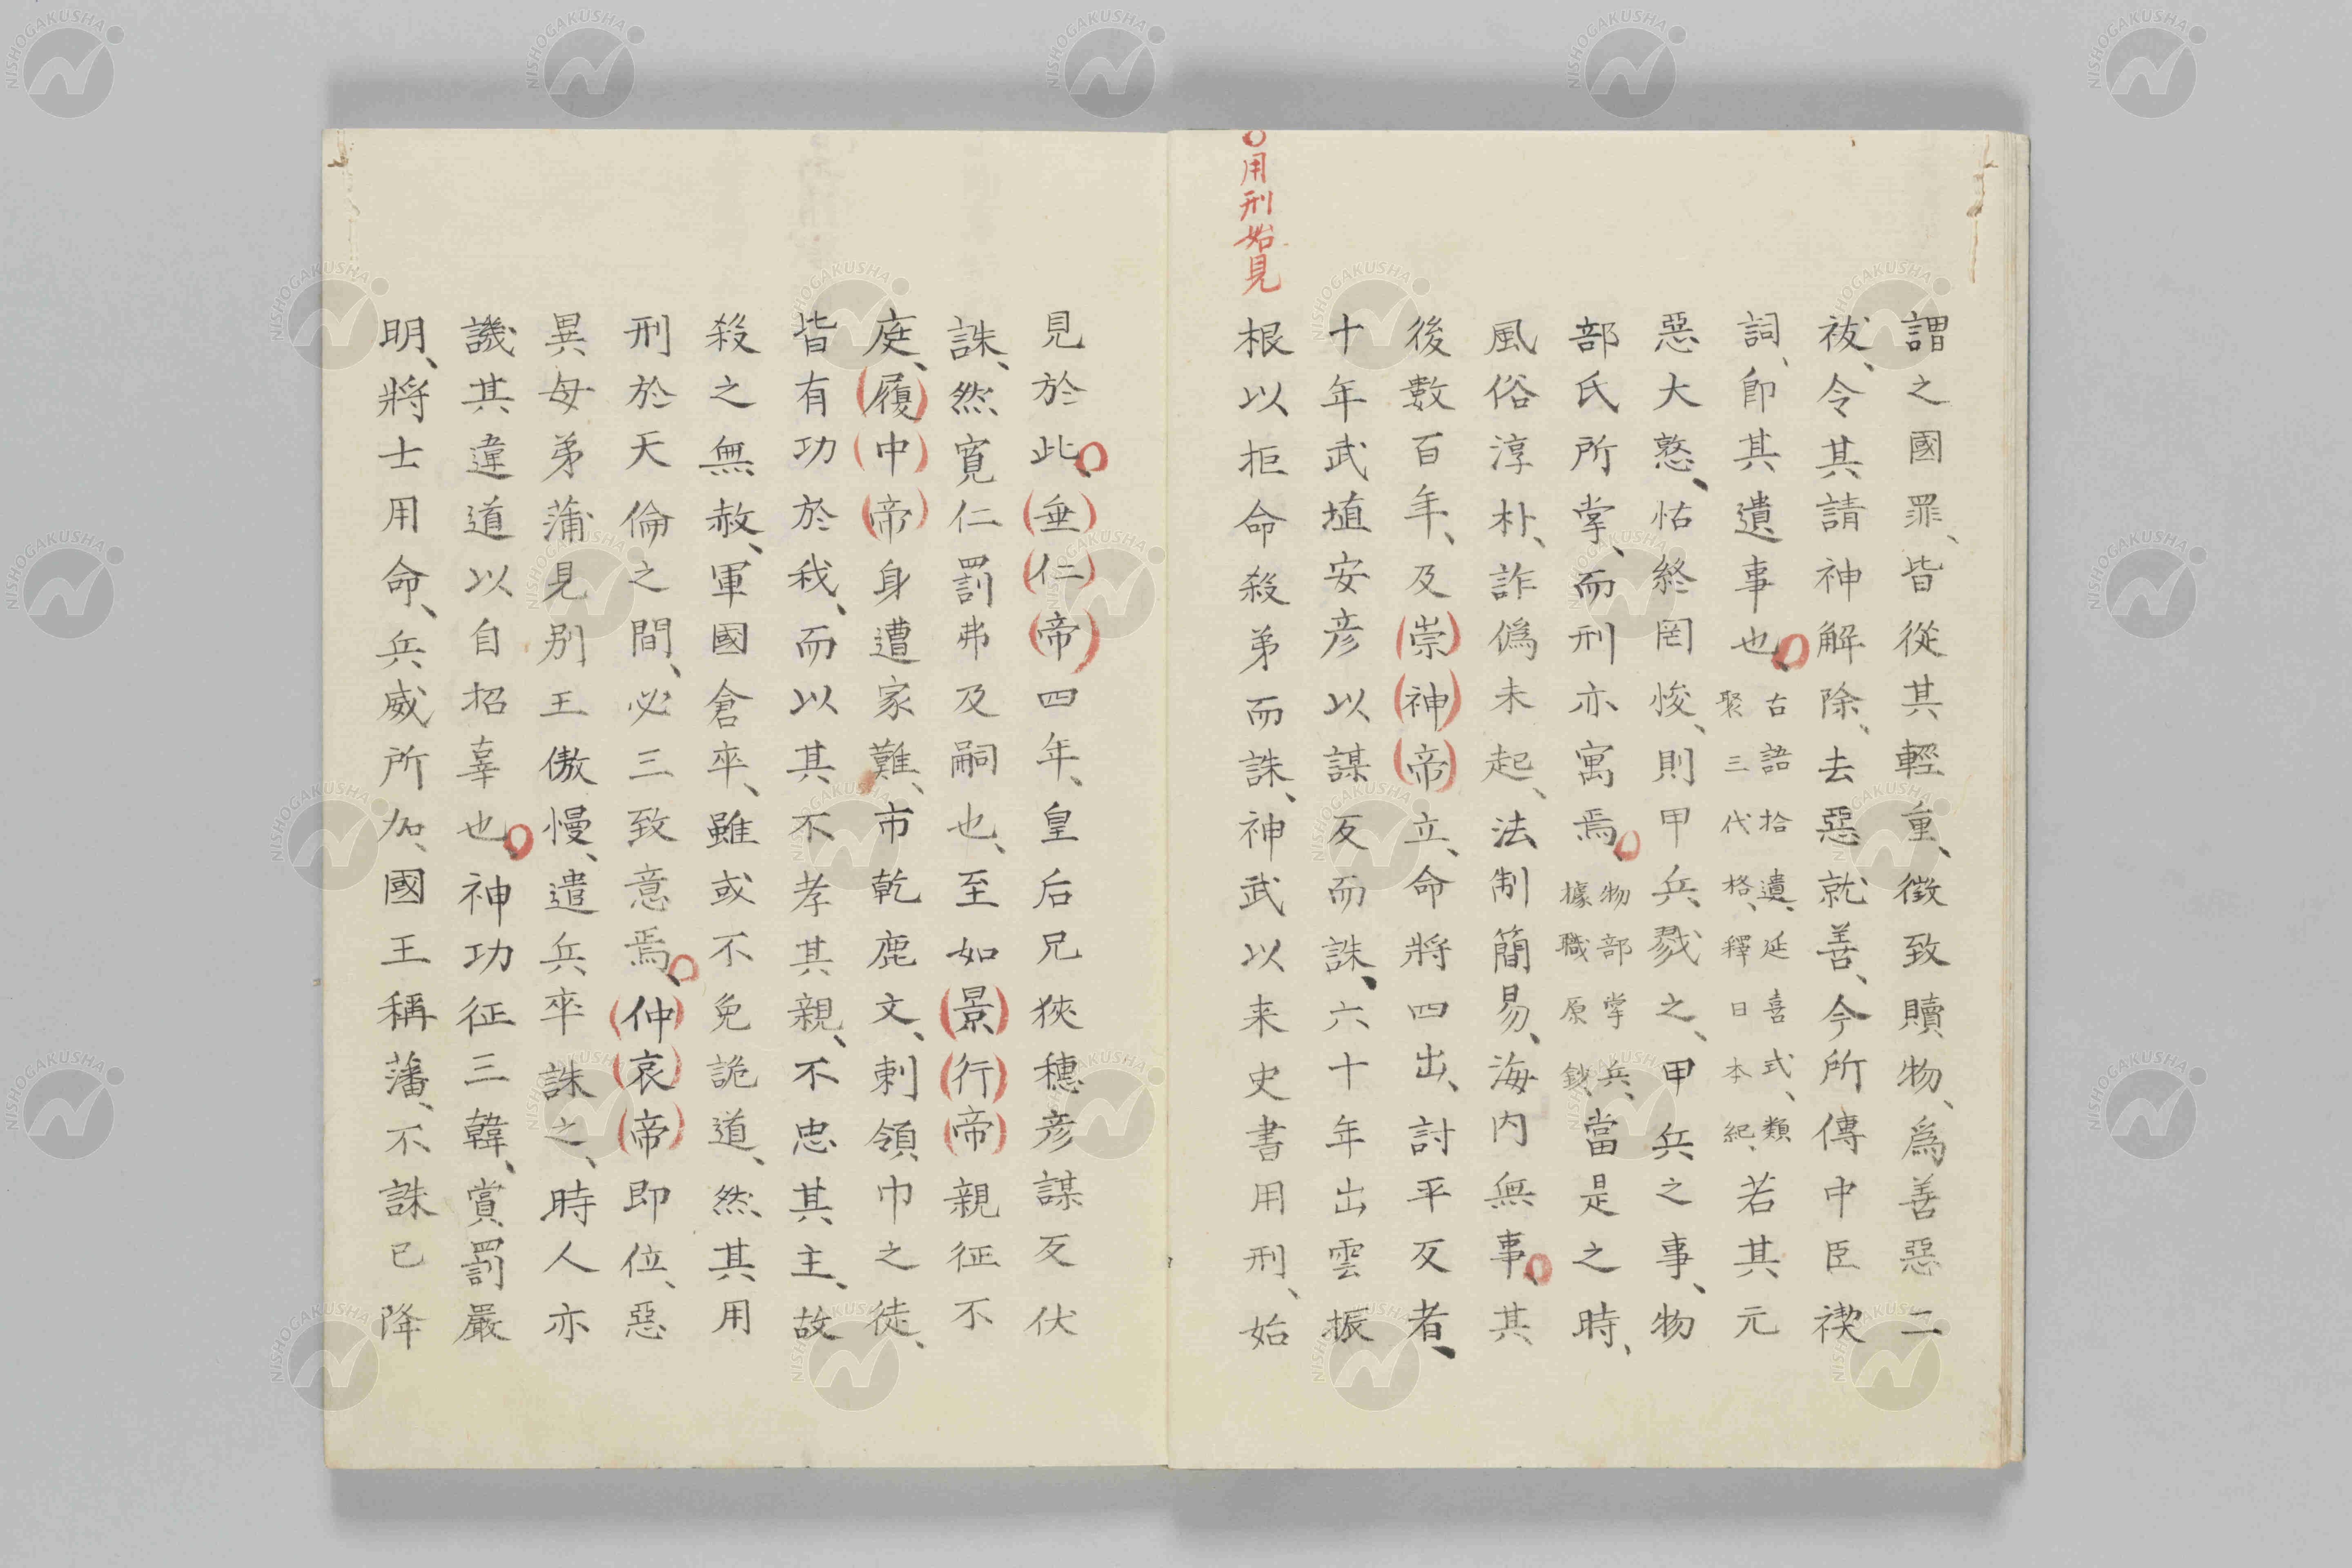 謂之國罪、皆從其輕重、徵致贖物、爲善惡二
祓、令其請神解除、去惡就善、今所傳中臣禊
詞、即其遺事也、古語拾遺、延喜式、類聚三代格、釋日本紀、若其元
惡大憝、怙終罔悛、則甲兵戮之、甲兵之事、物
部氏所掌、而刑亦寓焉、物部掌兵、據職原鈔、當是之時、
風俗淳朴、詐僞未起、法制簡易、海内無事、其
後數百年、及(崇)(神)(帝)立、命將四出、討平反者、
十年武埴安彦以謀反而誅、六十年出雲振
○用刑始見
根以拒命殺弟而誅、神武以来史書用刑、始
見於此、(垂)(仁)(帝)四年、皇后兄狹穗彦謀反伏
誅、然寛仁罰弗及嗣也、至如(景)(行)(帝)親征不
庭、(履)(中)(帝)身遭家難、市乾鹿文、刺領巾之徒、
皆有功於我、而以其不孝其親、不忠其主、故
殺之無赦、軍國倉卒、雖或不免詭道、然其用
刑於天倫之間、必三致意焉、(仲)(哀)(帝)即位、惡
異母弟蒲見別王傲慢、遣兵卒誅之、時人亦
譏其違道以自招辜也、神功征三韓、賞罰嚴
明、將士用命、兵威所加、國王稱藩、不誅已降
NISHOGAKUSHA